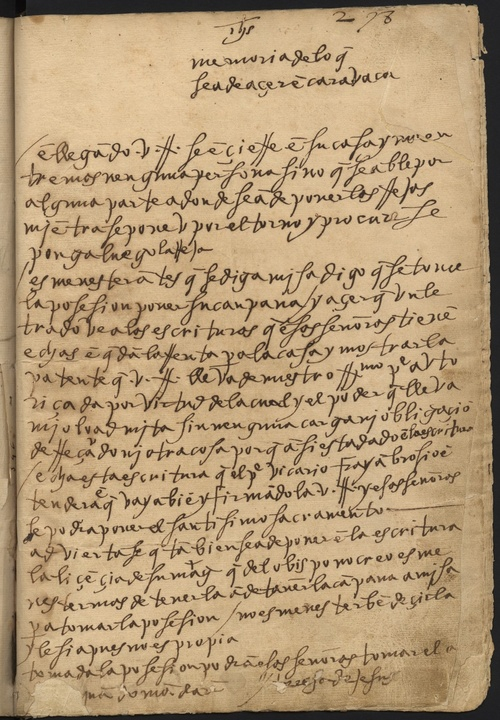 Jhs
273
memoria de lo q̄
se a de açer ē carabaca
ē llegādo v. R. se ēçierre ē su casa y no en
tre mas nenguna persona sino q̄ se able por
alguna parte adonde se a de poner las rrejas
miētra se pone y por el torno y procurē se
ponga luego la rreja
es menester antes q̄ se diga misa digo q̄ se tome
la posesion poner su canpana y açer q̄ un le
trado vea las escrituras q̄ esos señoras tienē
echas ē q̄ dā la rrenta pa la casa y mostrar la
patente q̄ v. R. lleva de nuestro Rmo pe avto
riçada por virtud de la cual y el poder q̄ lleva
mio la admita sin nenguna carga ni obligaçiō
de rreçado ni otra cosa porq̄ asi es tadado ē la escritura
echa esta escritura q̄ el pe vicario fray anbrosio ē
tenderā q̄ vaya biē y firmadola v. R. y esos señoras
se podra poner el santisimo sacramento
adviertase q̄ tābien se a de poner ē la escritura
la liçēçia de su mag. q̄ del obispo no creo es me
nester mas de tenerla ā de tañer la cāpana a misa
pa tomar la posesion no es menester bēdeçir la
yglesia pues no es propia
tomada la posesion podrā las señoras tomar el a